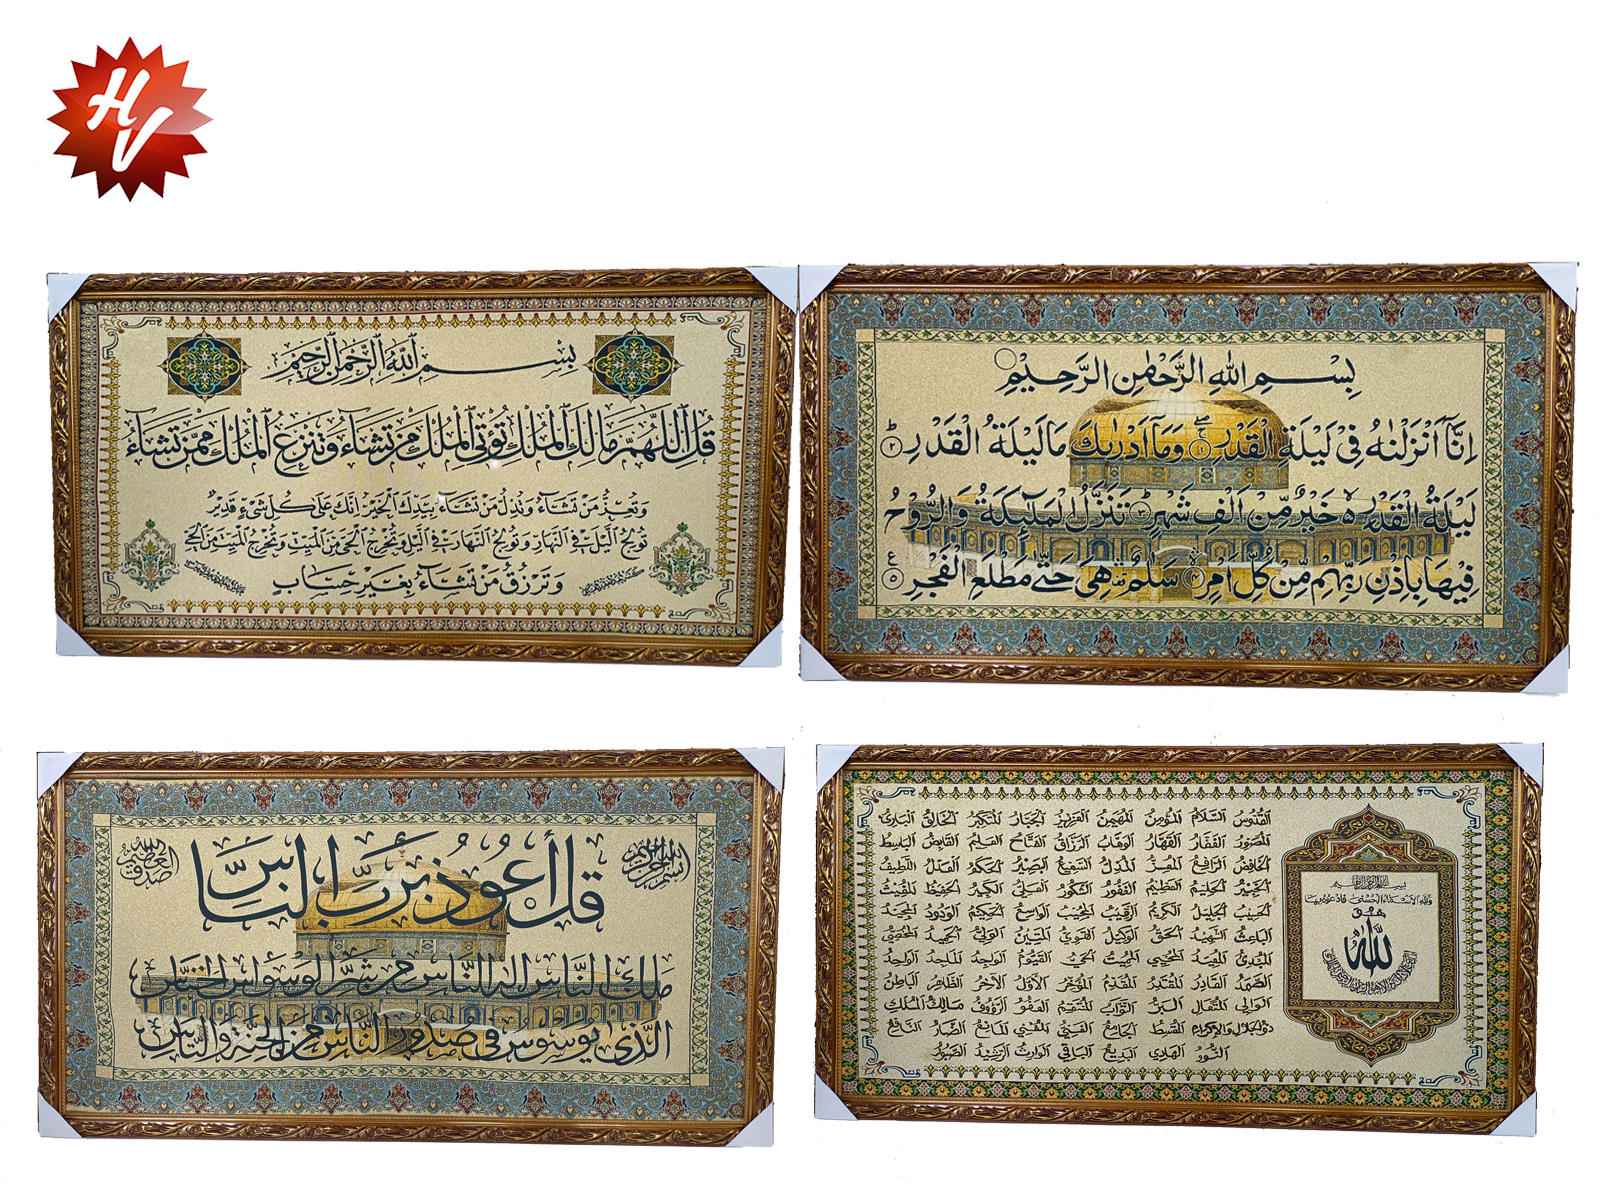 HV
بِسْــــمِ ٱللَّهِ ٱلرَّحْمَٰنِ ٱلرَّحِيمِ
قُلِ ٱللَّهُمَّ مَالِكَ ٱلْمُلْكِ تُؤْتِي ٱلْمُلْكَ مَن تَشَاءُ وَتَنزِعُ ٱلْمُلْكَ مِمَّن تَشَاءُ
وَتُعِزُّ مَنْ تَشَاءُ وَتُذِلُّ مَنْ تَشَاءُ بِيَدِكَ الْخَيْرُ إِنَّكَ عَلَىٰ كُلِّ شَيْءٍ قَدِيرٌ
تُولِجُ الَّيْلَ فِي النَّهَارِ وَتُولِجُ النَّهَارَ فِي الَّيْلِ وَتُخْرِجُ الْحَيَّ مِنَ الْمَيِّتِ وَتُخْرِجُ الْمَيِّتَ مِنَ الْحَيِّ
وَتَرْزُقُ مَنْ تَشَاءُ بِغَيْرِ حِسَابٍ
بِسْــــمِ اللهِ الرَّحْمٰنِ الرَّحِيْمِ
اِنَّآ اَنْزَلْنٰهُ فِيْ لَيْلَةِ الْقَدْرِ ١ وَمَآ اَدْرٰىكَ مَا لَيْلَةُ الْقَدْرِ ٢
لَيْلَةُ الْقَدْرِ ەۙ خَيْرٌ مِّنْ اَلْفِ شَهْرٍ ٣ تَنَزَّلُ الْمَلٰٓىِٕكَةُ وَالرُّوْحُ
فِيْهَا بِاِذْنِ رَبِّهِمْ مِّنْ كُلِّ اَمْرٍ ٤ سَلٰمٌ ۛ هِيَ حَتّٰى مَطْلَعِ الْفَجْرِ ٥
قُلْ أَعُوذُ بِرَبِّ النَّاسِ
صدق الله العظيم
مَلِكِ النَّاسِ إِلَهِ النَّاسِ مِن شَرِّ الْوَسْوَاسِ الْخَنَّاسِ
الَّذِي يُوَسْوِسُ فِي صُدُورِ النَّاسِ مِنَ الْجِنَّةِ وَالنَّاسِ
القُدُّوسُ السَّلَامُ المُؤْمِنُ المُهَيْمِنُ العَزِيزُ الجَبَّارُ المُتَكَبِّرُ الخَالِقُ البَارِئُ
المُصَوِّرُ الغَفَّارُ القَهَّارُ الوَهَّابُ الرَّزَّاقُ الفَتَّاحُ العَلِيمُ القَابِضُ البَاسِطُ
الخَافِضُ الرَّافِعُ المُعِزُّ المُذِلُّ السَّمِيعُ البَصِيرُ الحَكَمُ العَدْلُ اللَّطِيفُ
الخَبِيرُ الحَلِيمُ العَظِيمُ الغَفُورُ الشَّكُورُ العَلِيُّ الكَبِيرُ الحَفِيظُ المُقِيتُ
الحَسِيبُ الجَلِيلُ الكَرِيمُ الرَّقِيبُ المُجِيبُ الوَاسِعُ الحَكِيمُ الوَدُودُ المَجِيدُ
البَاعِثُ الشَّهِيدُ الحَقُّ الوَكِيلُ القَوِيُّ المَتِينُ الوَلِيُّ الحَمِيدُ المُحْصِي
المُبْدِئُ المُعِيدُ المُحْيِي المُمِيتُ الحَيُّ القَيُّومُ الوَاجِدُ المَاجِدُ الوَاحِدُ
الصَّمَدُ القَادِرُ المُقْتَدِرُ المُقَدِّمُ المُؤَخِّرُ الأَوَّلُ الآخِرُ الظَّاهِرُ البَاطِنُ
الوَالِي المُتَعَالِ البَرُّ التَّوَّابُ المُنْتَقِمُ العَفُوُّ الرَّؤُوفُ مَالِكُ المُلْكِ
ذُو الجَلَالِ وَالإِكْرَامِ المُقْسِطُ الجَامِعُ الغَنِيُّ المُغْنِي المَانِعُ الضَّارُّ النَّافِعُ
النُّورُ الهَادِي البَدِيعُ البَاقِي الوَارِثُ الرَّشِيدُ الصَّبُورُ
بسم الله الرحمن الرحيم
ولله الأسماء الحسنى فادعوه بها
هُوَ
الله